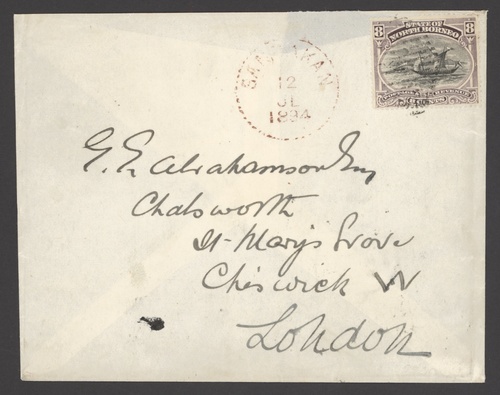 8 STATE OF 8
NORTH BORNEO
POSTAGE & REVENUE
CENTS
SANDAKAN
12
JL
1894
G. E. Abrahamson Esq
Chatsworth
St Mary's Grove
Chiswick W
London